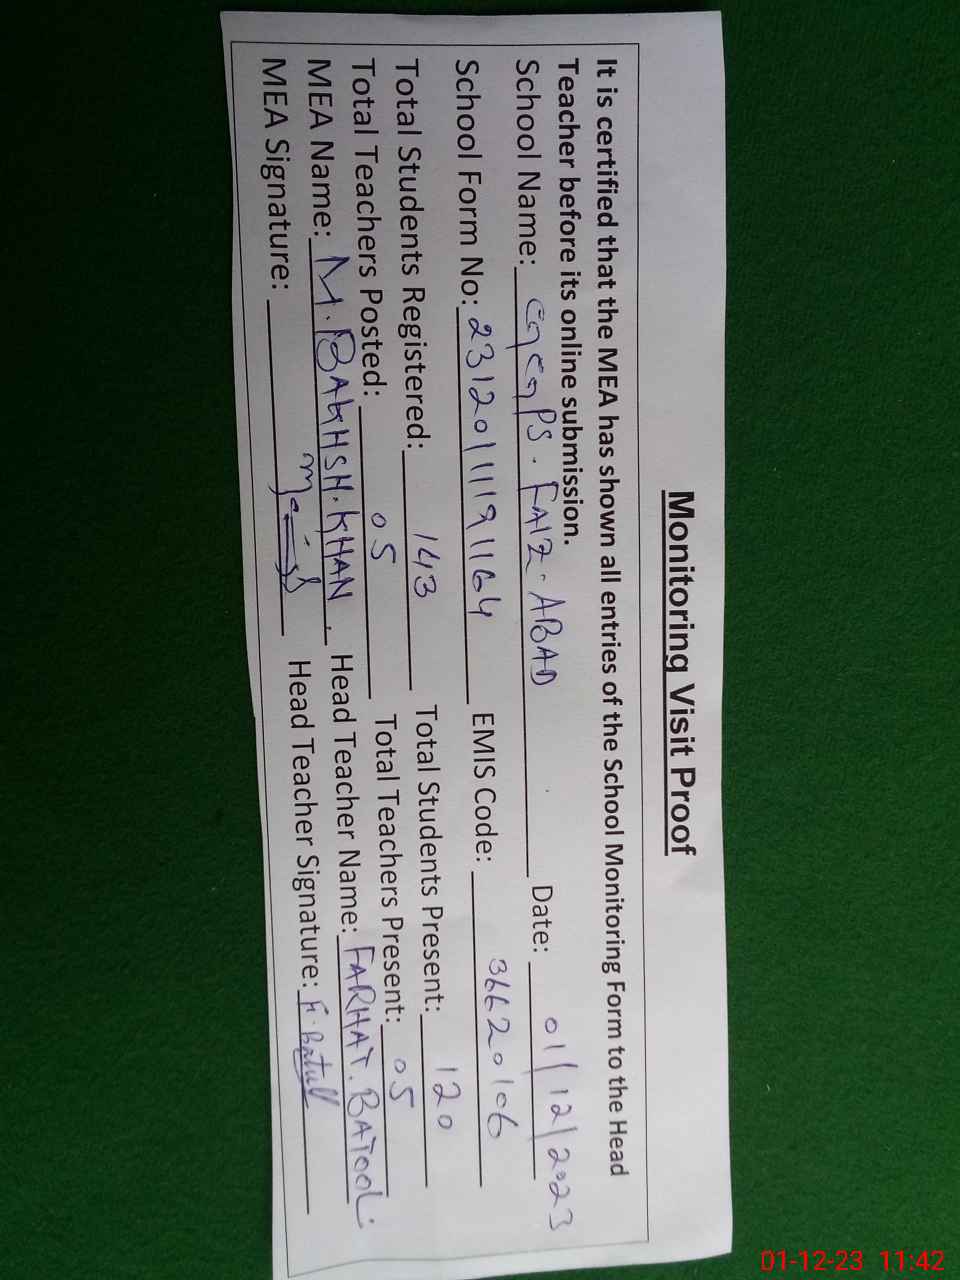 Monitoring Visit Proof
It is certified that the MEA has shown all entries of the School Monitoring Form to the Head
Teacher before its online submission.
School Name: GGCPS. FAIZ. ABAD Date: 01/12/2023
School Form No: 23120111191164 EMIS Code: 36620106
Total Students Registered: 143 Total Students Present: 120
Total Teachers Posted: 05 Total Teachers Present: 05
MEA Name: M. BAKHSH. KHAN. Head Teacher Name: FARHAT. BATOOL.
MEA Signature: Head Teacher Signature: F. Batull
01-12-23 11:42